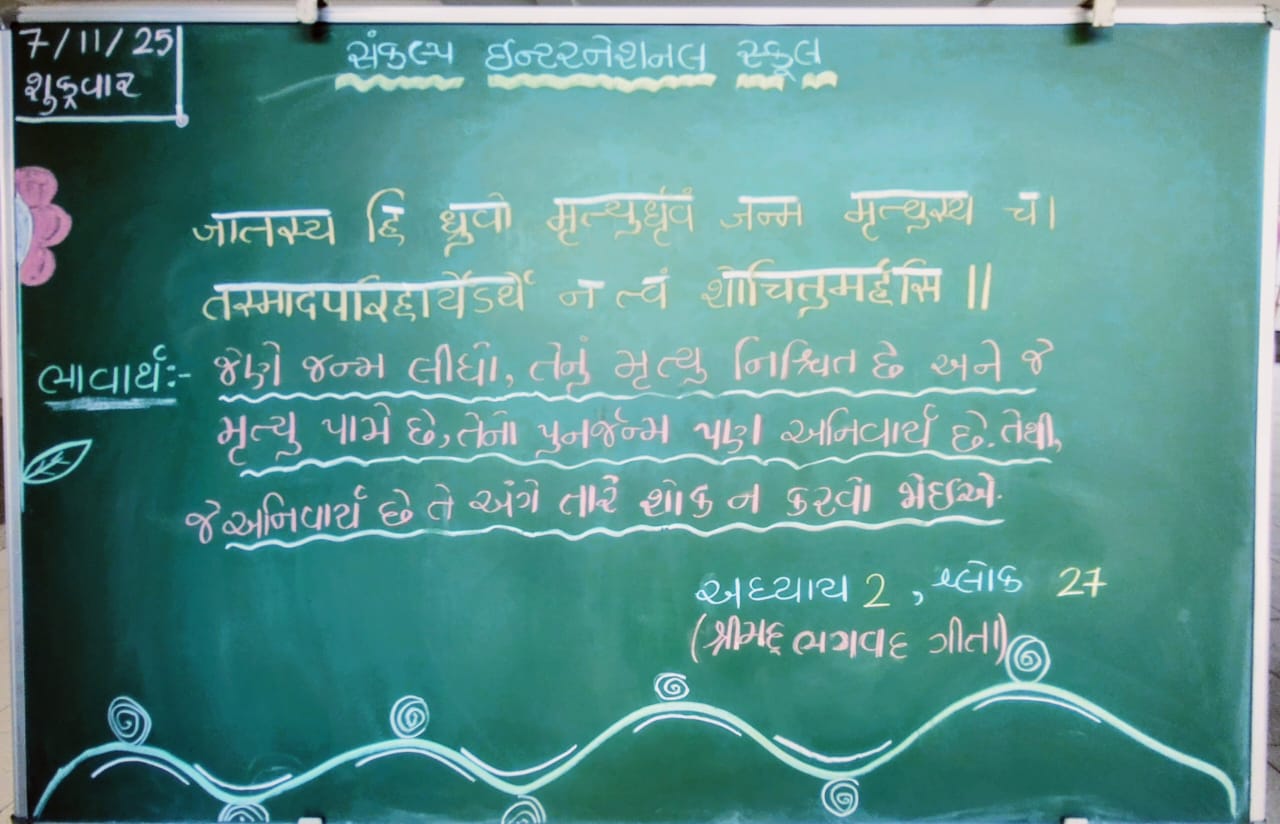 7/11/25
શુક્રવાર
સંકલ્પ ઇન્ટરનેશનલ સ્કૂલ
जातस्य हि ध्रुवो मृत्युर्ध्रुवं जन्म मृत्युस्य च।
तस्मादपरिहार्येऽर्थे न त्वं शोचितुमर्हसि ||
ભાવાર્થ:- જેણે જન્મ લીધો, તેનું મૃત્યુ નિશ્ચિત છે અને જે
મૃત્યુ પામે છે, તેનો પુનર્જન્મ પણ અનિવાર્ય છે. તેથી,
જે અનિવાર્ય છે તે અંગે તારે શોક ન કરવો જોઇએ.
અધ્યાય 2, શ્લોક 27
(શ્રીમદ્ ભગવદ ગીતા)